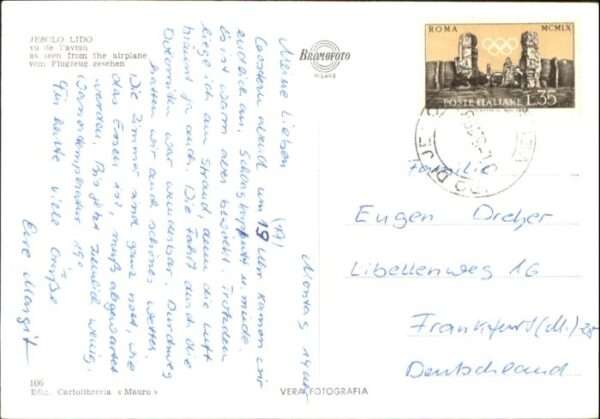 JESOLO LIDO
vu de l'avion
as seen from the airplane
vom Flugzeug gesehen
BROMOFOTO
MILANO
ROMA MCMLX
POSTE ITALIANE L.35
Montag 14 Uhr
Meine Lieben (17)
Gestern abend um 19 Uhr kamen wir
endlich an. kaputt u. müde.
Es ist warm aber bewölkt. Trotzdem
liege ich am Strand, denn die Luft
bräunt ja auch. Die Fahrt durch die
Dolomiten war wunderbar. Durchweg
hatten wir auch schönes Wetter.
Die Zimmer sind ganz nett, wie
das Essen ist, muß abgewartet
werden. Bis jetzt ziemlich wenig.
Wassertemperatur 19°
Für heute viele Grüße
Eure Margit
Familie
Eugen Dreher
Libellenweg 16
Frankfurt (M.)
Deutschland
106
Ediz. Cartolibreria « Mauro »
VERA FOTOGRAFIA